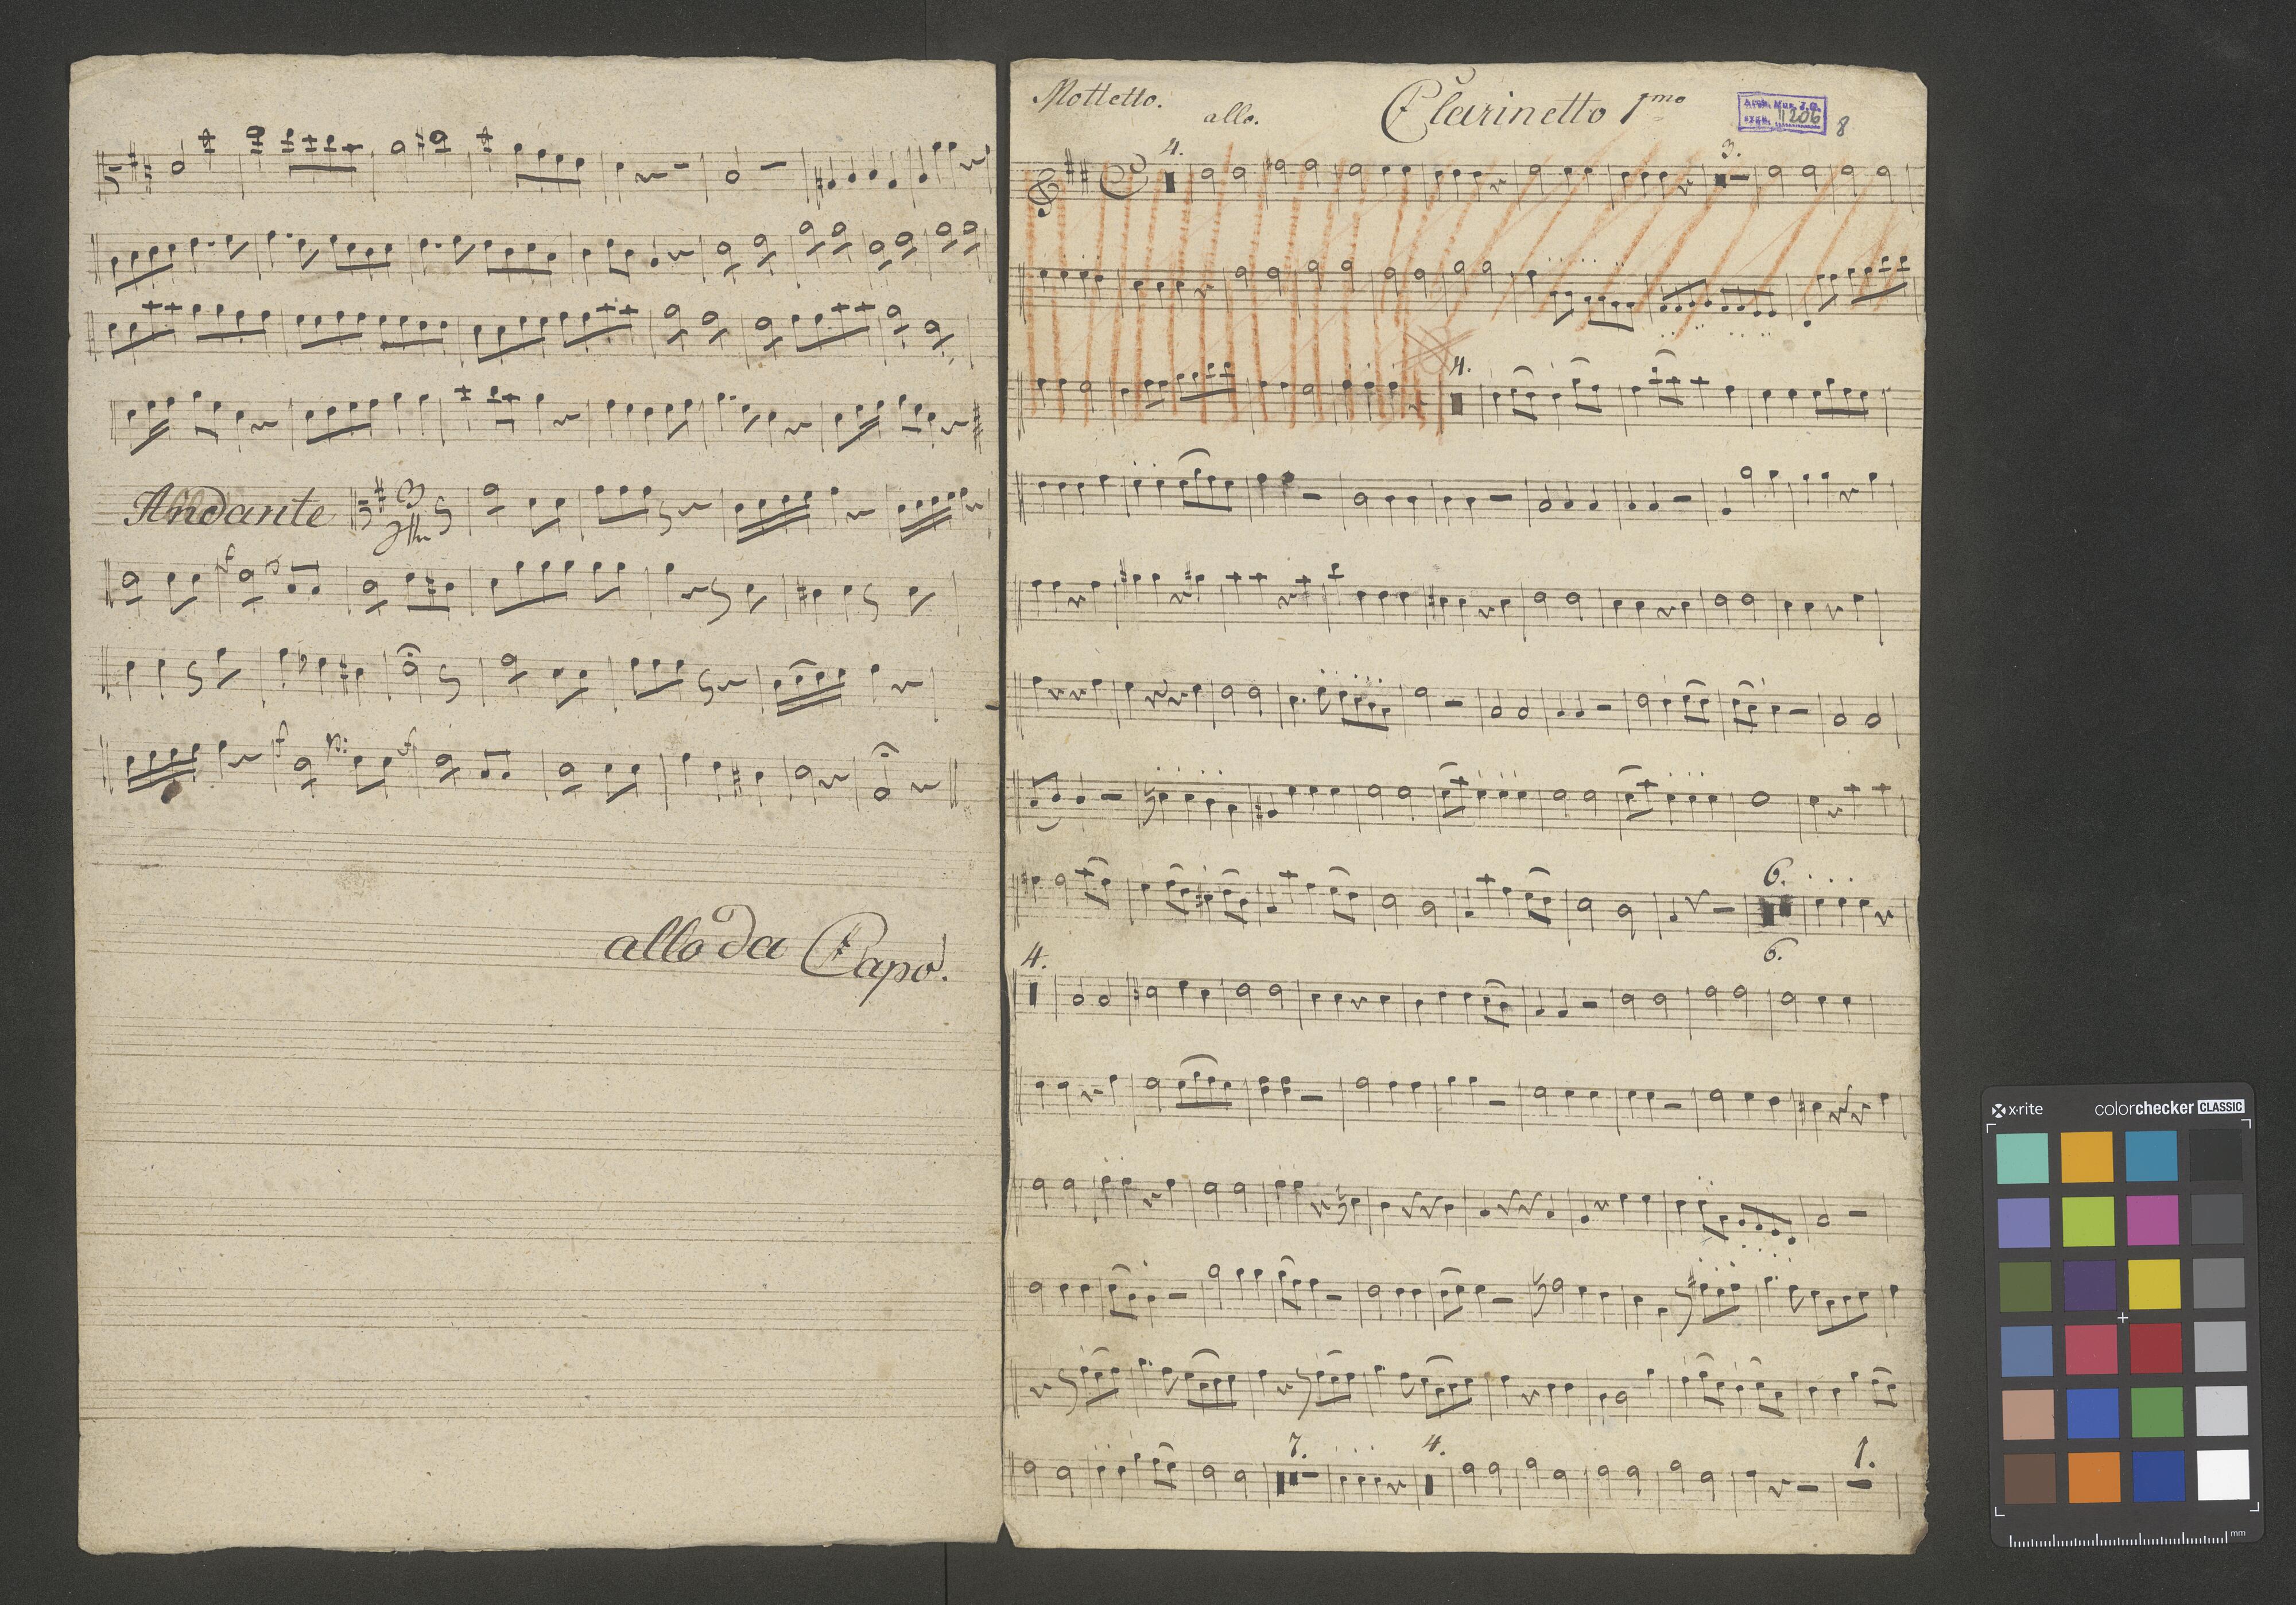 Andante
f
f p: f
allo da Capo.
Mottetto. allo. Clarinetto 1mo
1206
8
4. 3.
4.
6.
6.
4.
7. 4. 1.
x-rite colorchecker CLASSIC
mm